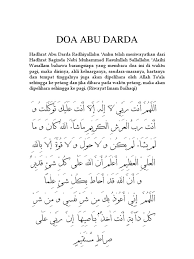 DOA ABU DARDA
Hadhrat Abu Darda Radhiyallahu 'anhu telah meriwayatkan dari
Hadhrat Baginda Nabi Muhammad Rasulullah Sallallahu 'Alaihi
Wasallam bahawa barangsiapa yang membaca doa ini di waktu
pagi, maka dirinya, ahli keluarganya, saudara-maranya, hartanya
dan tempat tinggalnya juga akan dipelihara oleh Allah Ta'ala
sehingga ke petang dan jika dibaca pada waktu petang, maka akan
dipelihara sehingga ke pagi. (Riwayat Imam Baihaqi)
اَللّٰهُمَّ أَنْتَ رَبِّيْ لَا إِلٰهَ إِلَّا أَنْتَ عَلَيْكَ تَوَكَّلْتُ وَ
أَنْتَ رَبُّ الْعَرْشِ الْكَرِيْمِ مَا شَاءَ اللهُ كَانَ وَ مَا لَمْ
يَشَأْ لَمْ يَكُنْ وَ لَا حَوْلَ وَ لَا قُوَّةَ إِلَّا بِاللهِ
الْعَلِيِّ الْعَظِيْمِ أَعْلَمُ أَنَّ اللهَ عَلَى كُلِّ شَيْءٍ قَدِيْرٌ
وَ أَنَّ اللهَ قَدْ أَحَاطَ بِكُلِّ شَيْءٍ عِلْمًا
اَللّٰهُمَّ إِنِّيْ أَعُوْذُ بِكَ مِنْ شَرِّ نَفْسِيْ وَ مِنْ شَرِّ
كُلِّ دَابَّةٍ أَنْتَ آخِذٌ بِنَاصِيَتِهَا إِنَّ رَبِّيْ عَلَى
صِرَاطٍ مُسْتَقِيْمٍ